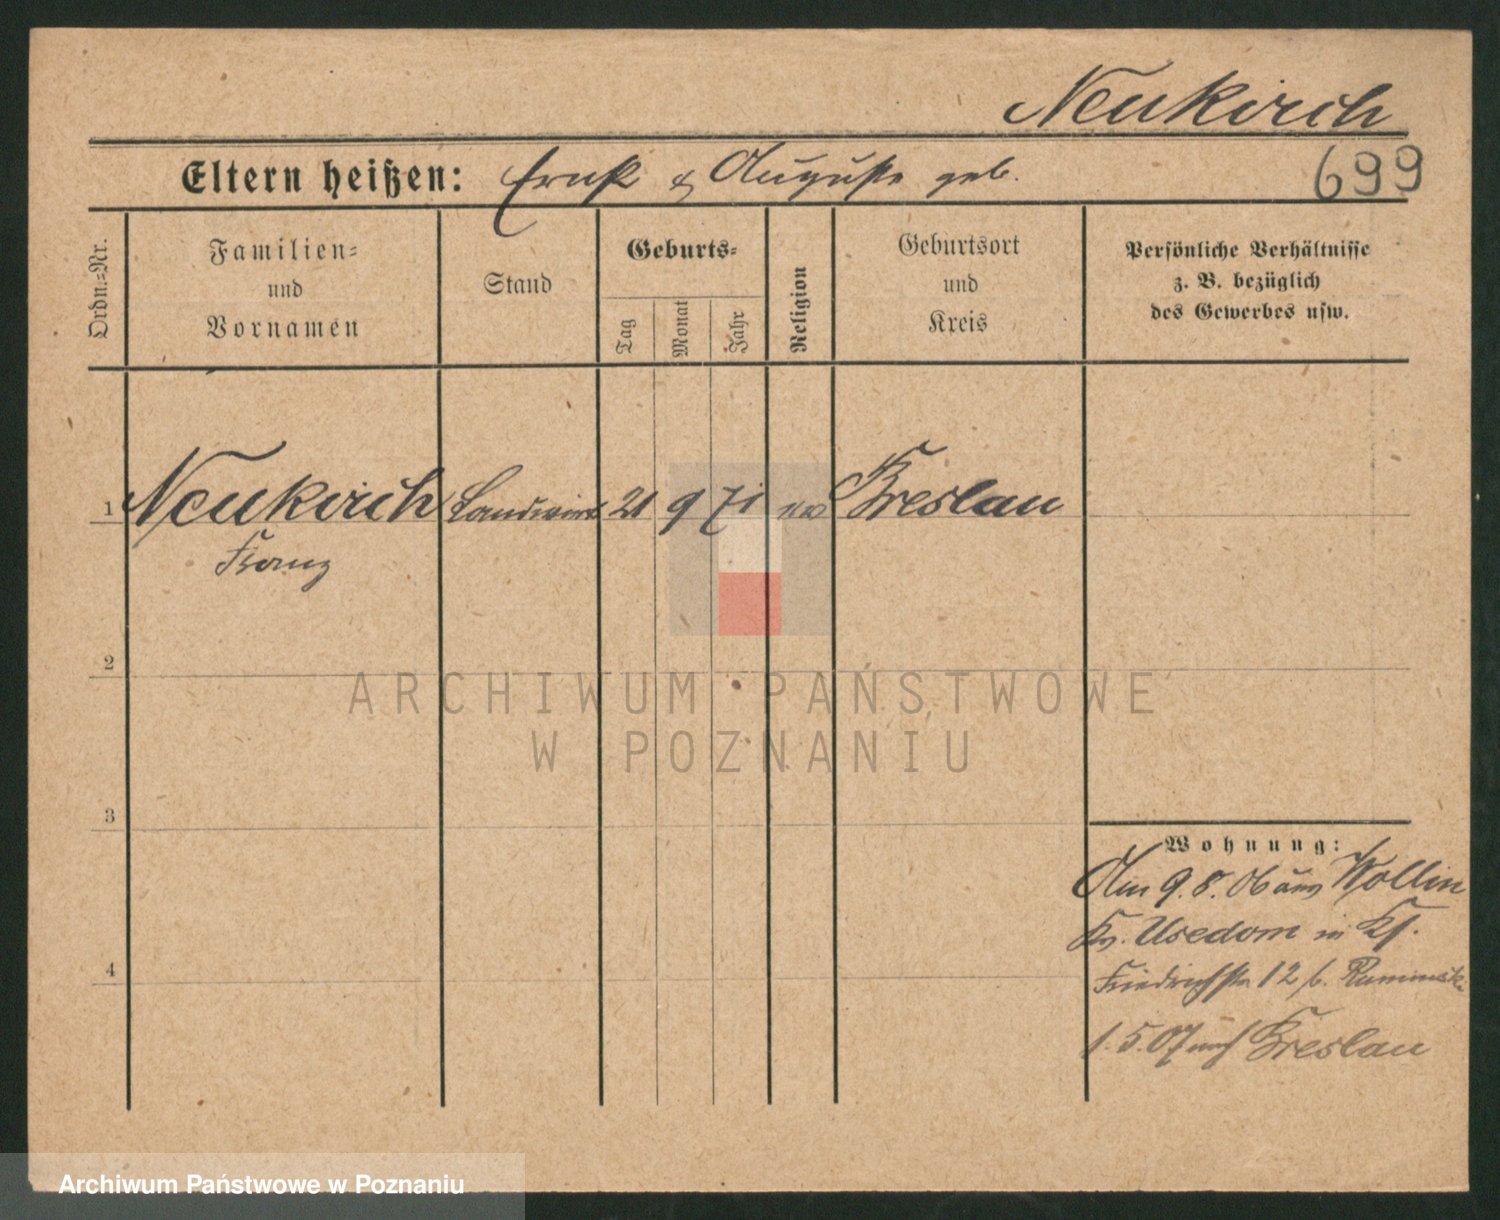 Neukirch
Eltern heißen: Ernst & Auguste geb.
699
Ordn.=Nr.
Familien=
und
Vornamen
Stand
Geburts=
Tag
Monat
Jahr
Religion
Geburtsort
und
Kreis
Persönliche Verhältnisse
z. B. bezüglich
des Gewerbes usw.
1 Neukirch Landwirt 21 9 71 Breslau
Franz
2
3
4
Wohnung:
Am 9.8.06 aus Wollin
Kr. Usedom in
Friedrichstr 12 b.
1.5.07 nach Breslau
ARCHIWUM PAŃSTWOWE
W POZNANIU
Archiwum Państwowe w Poznaniu